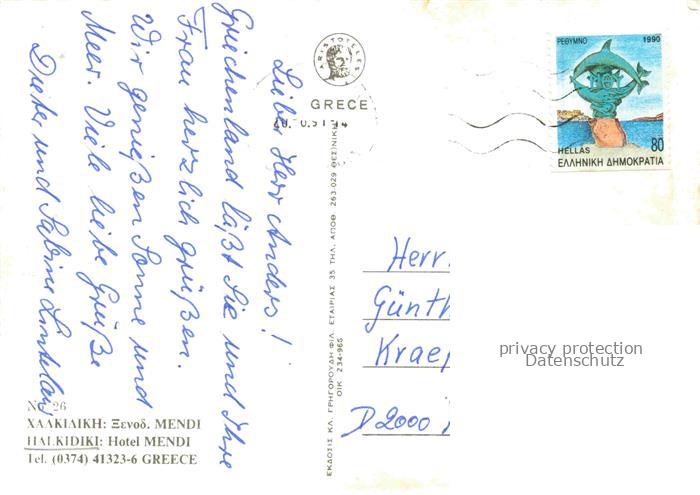 Lieber Herr Anders!
Griechenland läßt Sie und Ihre
Frau herzlich grüßen.
Wir genießen Sonne und
Meer. Viele liebe Grüße
Dieter und Sabine
No 26
ΧΑΛΚΙΔΙΚΗ: Ξενοδ. MENDI
HALKIDIKI: Hotel MENDI
Tel. (0374) 41323-6 GREECE
ARISTOTELES
GRECE
ΕΚΔΟΣΙΣ ΚΛ. ΓΡΗΓΟΡΟΥΔΗ ΦΙΛ. ΕΤΑΙΡΙΑΣ 35 ΤΗΛ. ΑΠΟΘ. 263-029 ΘΕΣ/ΝΙΚΗ
ΟΙΚ. 234-965
ΡΕΘΥΜΝΟ 1990
HELLAS 80
ΕΛΛΗΝΙΚΗ ΔΗΜΟΚΡΑΤΙΑ
Herr
Günth
Kraep
D 2000
privacy protection
Datenschutz